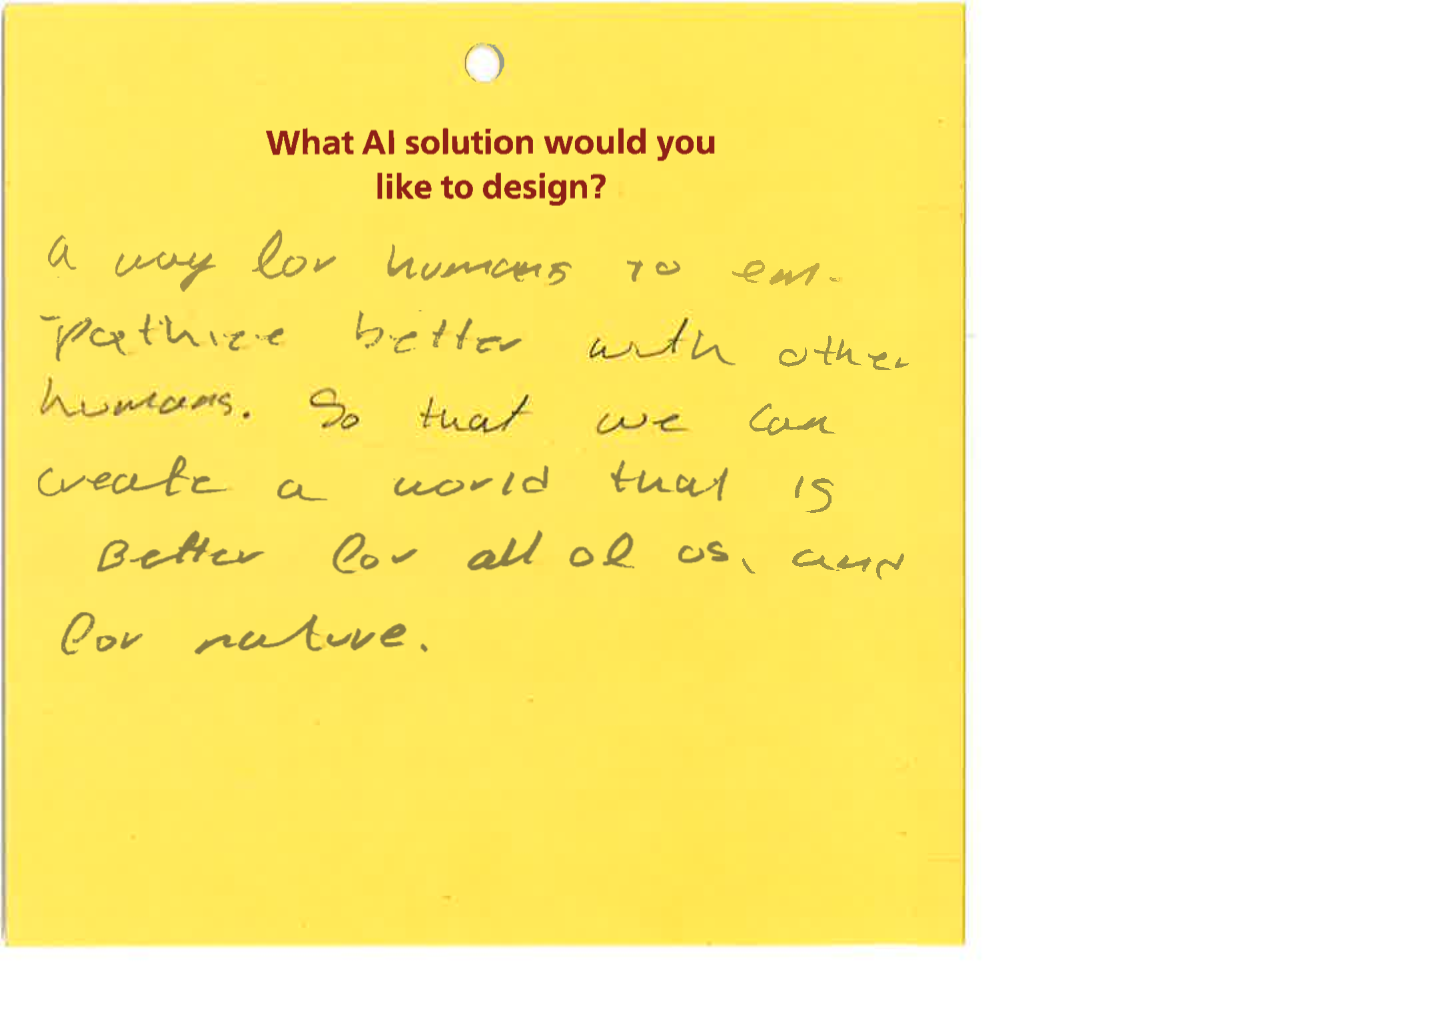 What AI solution would you
like to design?
a way for humans to em-
-pathize better with other
humans. So that we can
create a world that is
Better for all of us, and
for nature.